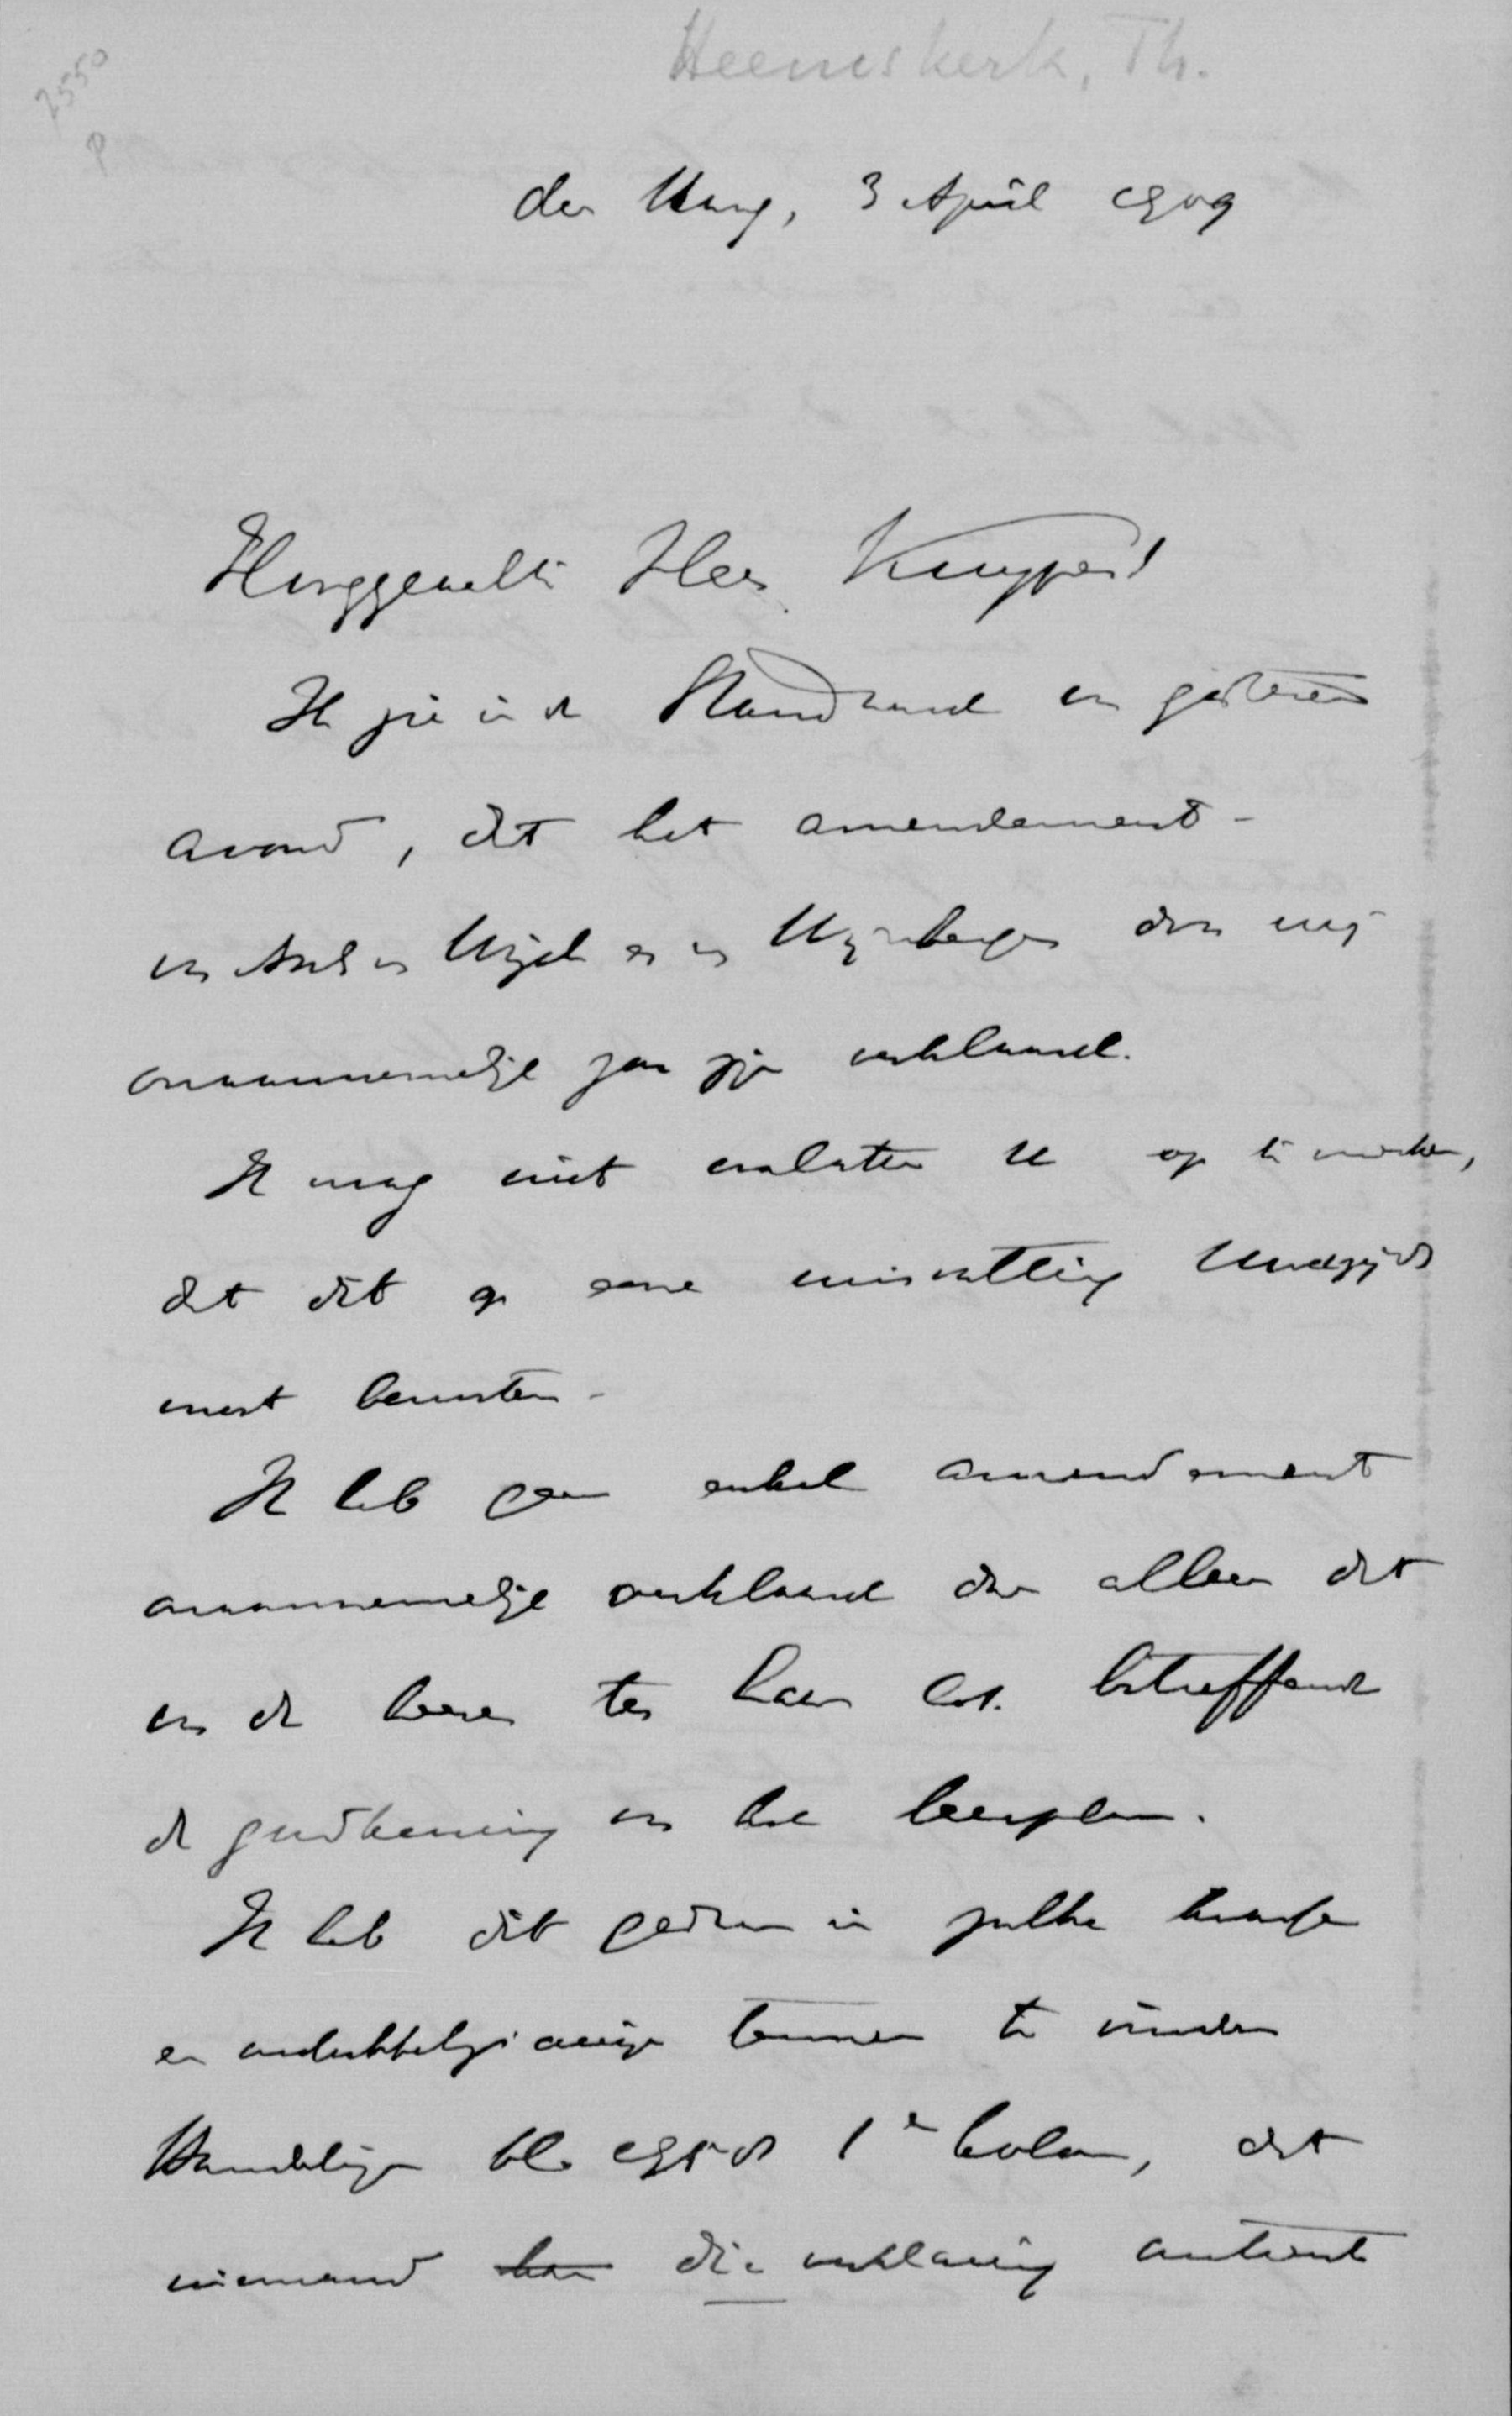 Heemskerk, Th.
2550
P
den Haag, 3 April 1909
Hooggeachte Heer Kuyper!
Ik zie in de Standaard van gisteren
avond, dat het amendement-
van Asch van Wijck en van Wijnbergen door mij
onaannemelijk zou zijn verklaard.
Ik mag niet nalaten U op te merken,
dat dit op eene misvatting Uwerzijds
moet berusten.
Ik heb geen enkel amendement
onaannemelijk verklaard dan alleen dat
van de heeren ter Laan c.s. betreffende
de goedkeuring van het leerplan.
Ik heb dit gedaan in zulke
en ondubbelzinnige termen te vinden
Handelingen blz. 1 e kolom, dat
niemand die verklaring